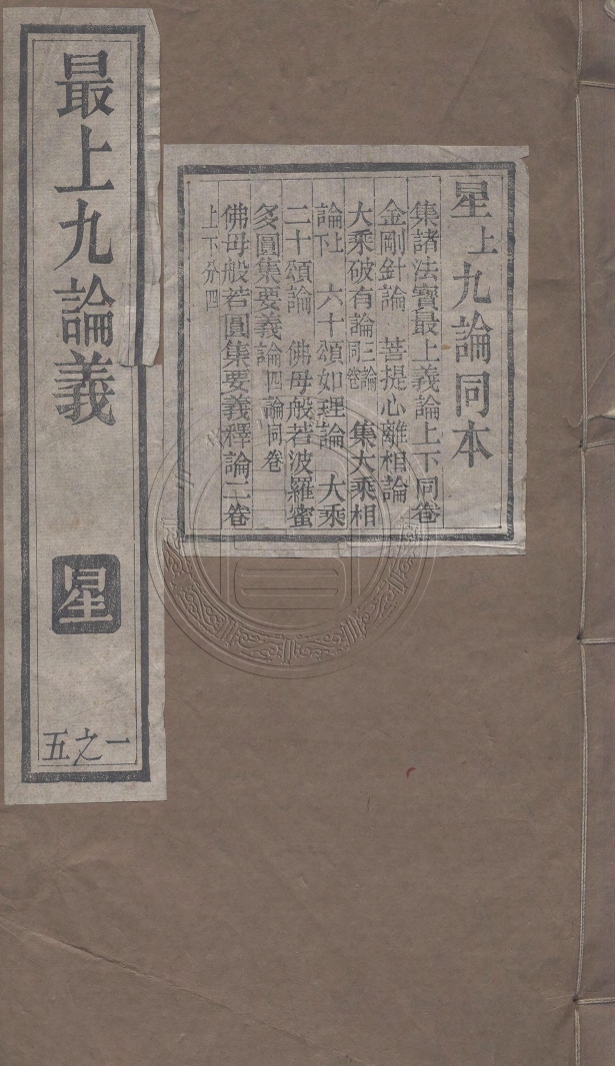 最上九論義
星
五之一
星上九論同本
集諸法寶最上義論上下同卷
金剛針論 菩提心離相論
大乘破有論三論同卷 集大乘相
論上下 六十頌如理論 大乘
二十頌論 佛母般若波羅蜜
多圓集要義論四論同卷
佛母般若圓集要義釋論二卷
上下分四